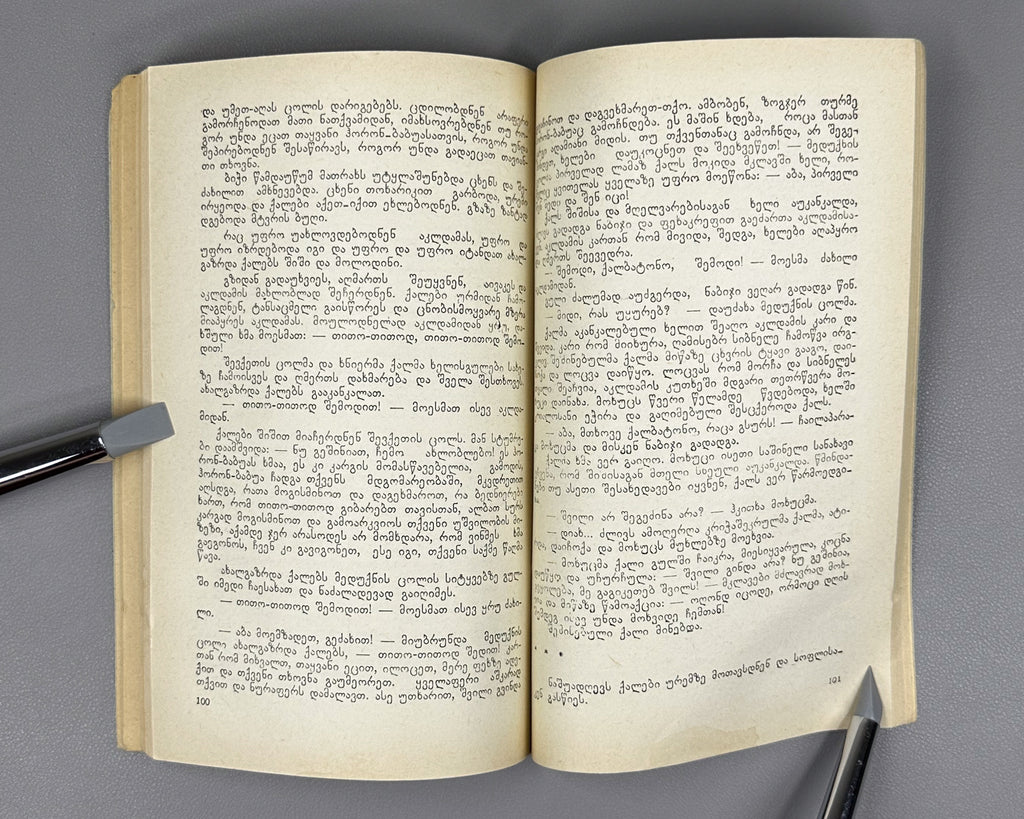 და უმეთ-აღას ცოლის დარიგებებს. ცდილობდნენ არაფერი
გამორჩენოდათ მათი ნათქვამიდან, იმახსოვრებდნენ თუ რო-
გორ უნდა ეცათ თაყვანი ჰორონ-ბაბუასათვის, როგორ უნდა
შეპირებოდნენ შესაწირავს, როგორ უნდა გადაეცათ თავიან-
თი თხოვნა.
ბიჭი წამდაუწუმ მათრახს უტყლაშუნებდა ცხენს და შე-
ძახილით ამხნევებდა. ცხენი თოხარიკით გარბოდა, ურემი
ირყეოდა და ქალები აქეთ-იქით ეხლებოდნენ. გზაზე ზანტად
დგებოდა მტვრის ბუღი.
რაც უფრო უახლოვდებოდნენ აკლდამას, უფრო და
უფრო იზრდებოდა იგი და უფრო და უფრო იტანდათ ახალ-
გაზრდა ქალებს შიში და მოლოდინი.
გზიდან გადაუხვიეს, აღმართს შეუყვნენ, აივაკეს და
აკლდამის მახლობლად შეჩერდნენ. ქალები ურმიდან ჩამო-
ლაგდნენ, ტანსაცმელი გაისწორეს და ცნობისმოყვარე მზერა
მიაპყრეს აკლდამას. მოულოდნელად აკლდამიდან ყრუ, და-
ხშული ხმა მოესმათ: — თითო-თითოდ, თითო-თითოდ შემო-
დით!
შევქეთის ცოლმა და ხნიერმა ქალმა ხელისგულები სახე-
ზე ჩამოისვეს და ღმერთს დახმარება და შველა შესთხოვეს,
ახალგაზრდა ქალებს გააკანკალათ.
— თითო-თითოდ შემოდით! — მოესმათ ისევ აკლდა-
მიდან.
ქალები შიშით მიაჩერდნენ შევქეთის ცოლს. მან სტუმრე-
ბი დაამშვიდა: — ნუ გეშინიათ, ჩემო ახლობლებო! ეს ჰო-
რონ-ბაბუას ხმაა, ეს კი კარგის მომასწავებელია, გამოდის,
ჰორონ-ბაბუა ჩადგა თქვენს მდგომარეობაში, მკვდრეთით
აღსდგა, რათა მოგისმინოთ და დაგეხმაროთ, რა ბედნიერები
ხართ, რომ თითო-თითოდ გიბარებთ თავისთან, ალბათ სურს
კარგად მოგისმინოთ და გამოარკვიოს თქვენი უშვილობის მი-
ზეზი, აქამდე ჯერ არასოდეს არ მომხდარა, რომ ვინმეს ხმა
გაეგონოს, ჩვენ კი გავიგონეთ, ესე იგი, თქვენი საქმე წაღმა
წავა.
ახალგაზრდა ქალებს მედუქნის ცოლის სიტყვებზე გულ-
ში იმედი ჩაესახათ და ნაძალადევად გაიღიმეს.
— თითო-თითოდ შემოდით! — მოესმათ ისევ ყრუ ძახი-
ლი.
— აბა მოემზადეთ, გეძახით! — მიუბრუნდა მედუქნის
ცოლი ახალგაზრდა ქალებს, — თითო-თითოდ შედით! კარ-
თან რომ მიხვალთ, თაყვანი ეცით, ილოცეთ, მერე ფეხზე ადე-
ქით და თქვენი თხოვნა გაუმეორეთ. ყველაფერი აშკარად
თქვით და ნურაფერს დამალავთ. ასე უთხარით, შვილი გვინდა
100
და დაგვეხმარეთ-თქო. ამბობენ, ზოგჯერ თურმე
გამოჩნდება. ეს მაშინ ხდება, როცა მასთან
ადამიანი მიდის. თუ თქვენთანაც გამოჩნდა, არ შეგე-
ხელები დაუკოცნეთ და შეეხვეწეთ! — მედუქნის
პირველად ლამაზ ქალს მოკიდა მკლავში ხელი, რო-
ყვითელას ყველაზე უფრო მოეწონა: — აბა, პირველი
და შენ იცი!
ქალს შიშისა და მღელვარებისაგან ხელი აუკანკალდა,
გადადგა ნაბიჯი და ფეხაკრეფით გაემართა აკლდამისა-
აკლდამის კართან რომ მივიდა, შედგა, ხელები აღაპყრო
ღმერთს შეევედრა.
— შემოდი, ქალბატონო, შემოდი! — მოესმა ძახილი
გული ძალუმად აუძგერდა, ნაბიჯი ვეღარ გადადგა წინ.
— მიდი, რას უყურებ? — დაუძახა მედუქნის ცოლმა.
ქალმა აკანკალებული ხელით შეაღო აკლდამის კარი და
კარი რომ მიიხურა, ღამისებრ სიბნელე ჩამოწვა ირგ-
შეშინებულმა ქალმა მიწაზე ცხვრის ტყავი გააგო, დაი-
და ლოცვა დაიწყო. ლოცვას რომ მორჩა და სიბნელეს
შეაჩვია, აკლდამის კუთხეში მდგარი თეთრწვერა მო-
დაინახა. მოხუცს წვერი წელამდე წვდებოდა, ხელში
ეჭირა და გაღიმებული შესცქეროდა ქალს.
— აბა, მთხოვე ქალბატონო, რაცა გსურს! — ჩაილაპარა-
მოხუცმა და მისკენ ნაბიჯი გადადგა.
ქალმა ხმა ვერ გაიღო. მოხუცი ისეთი საშინელი სანახავი
რომ შიშისაგან მთელი სხეული აუკანკალდა. წმინდა-
თუ ასეთი შესახედავები იყვნენ, ქალს ვერ წარმოედგი-
— შვილი არ შეგეძინა არა? — ჰკითხა მოხუცმა.
— დიახ... ძლივს ამოღერღა კრიჭაშეკრულმა ქალმა, ატი-
დაიჩოქა და მოხუცს მუხლებზე მოეხვია.
— მოხუცმა ქალი გულში ჩაიკრა, მიესიყვარულა, კოცნა
დაუწყო და უჩურჩულა: — შვილი გინდა არა? ნუ გეშინია,
მე გაგიკეთებ შვილს! — მკლავები მძლავრად მოხ-
და მიწაზე წამოაქცია: — ოღონდ იცოდე, ორმოცი დღის
შემდეგ ისევ უნდა მოხვიდე ჩემთან!
შეშინებული ქალი მინებდა.
* * *
ნაშუადღევს ქალები ურემზე მოთავსდნენ და სოფლისა-
კენ გასწიეს.
101